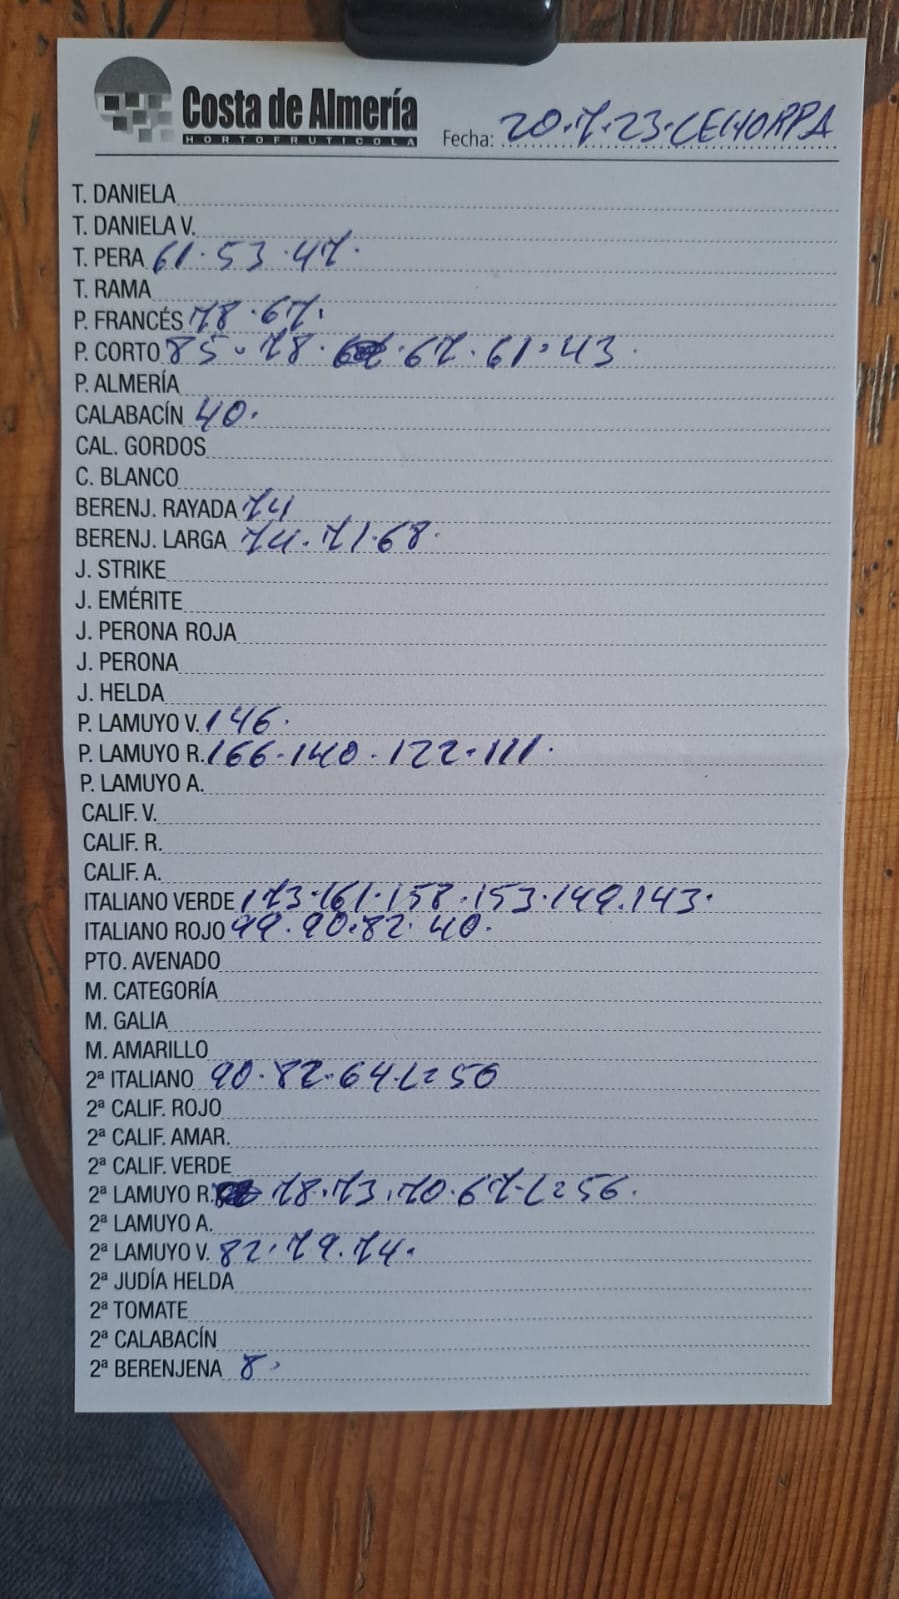 Costa de Almería
HORTOFRUTICOLA
Fecha: 20.7.23.CEHORPA
T. DANIELA
T. DANIELA V.
T. PERA 61.53.47.
T. RAMA
P. FRANCÉS 78.67.
P. CORTO 85.78. 67.61.43.
P. ALMERÍA
CALABACÍN 40.
CAL. GORDOS
C. BLANCO
BERENJ. RAYADA 74
BERENJ. LARGA 74.71.68.
J. STRIKE
J. EMÉRITE
J. PERONA ROJA
J. PERONA
J. HELDA
P. LAMUYO V. 146.
P. LAMUYO R. 166.140.122.111.
P. LAMUYO A.
CALIF. V.
CALIF. R.
CALIF. A.
ITALIANO VERDE 173.161.158.153.149.143.
ITALIANO ROJO 99.90.82.40.
PTO. AVENADO
M. CATEGORÍA
M. GALIA
M. AMARILLO
2ª ITALIANO 90.82.64.L=50
2ª CALIF. ROJO
2ª CALIF. AMAR.
2ª CALIF. VERDE
2ª LAMUYO R. 78.73.70.67.L=56.
2ª LAMUYO A.
2ª LAMUYO V. 82.79.74.
2ª JUDÍA HELDA
2ª TOMATE
2ª CALABACÍN
2ª BERENJENA 8.